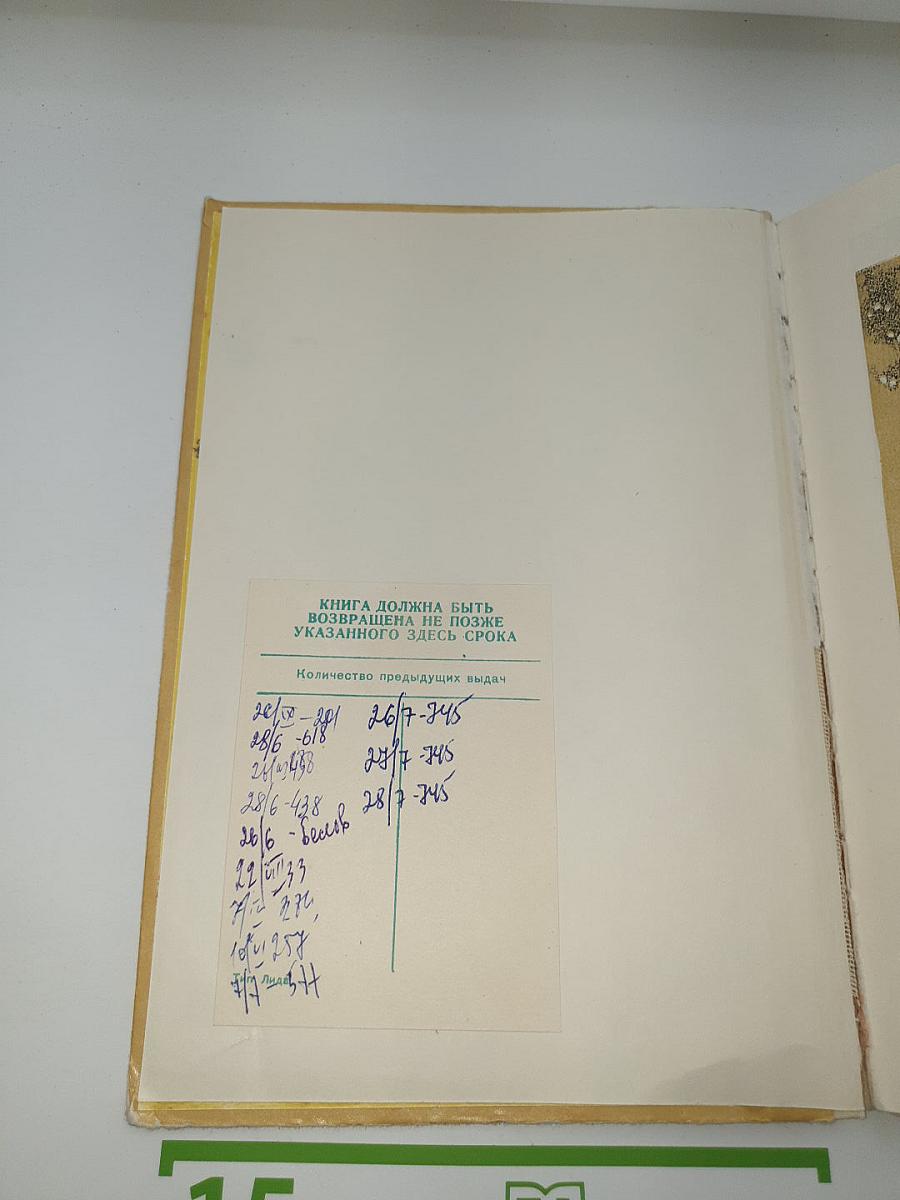 КНИГА ДОЛЖНА БЫТЬ
ВОЗВРАЩЕНА НЕ ПОЗЖЕ
УКАЗАННОГО ЗДЕСЬ СРОКА
Количество предыдущих выдач
28/6 - 618
28/6 - 438
26/6 -
22/VIII 33
10/VI 257
7/7 - 377
26/7 - 745
27/7 - 745
28/7 - 745
15